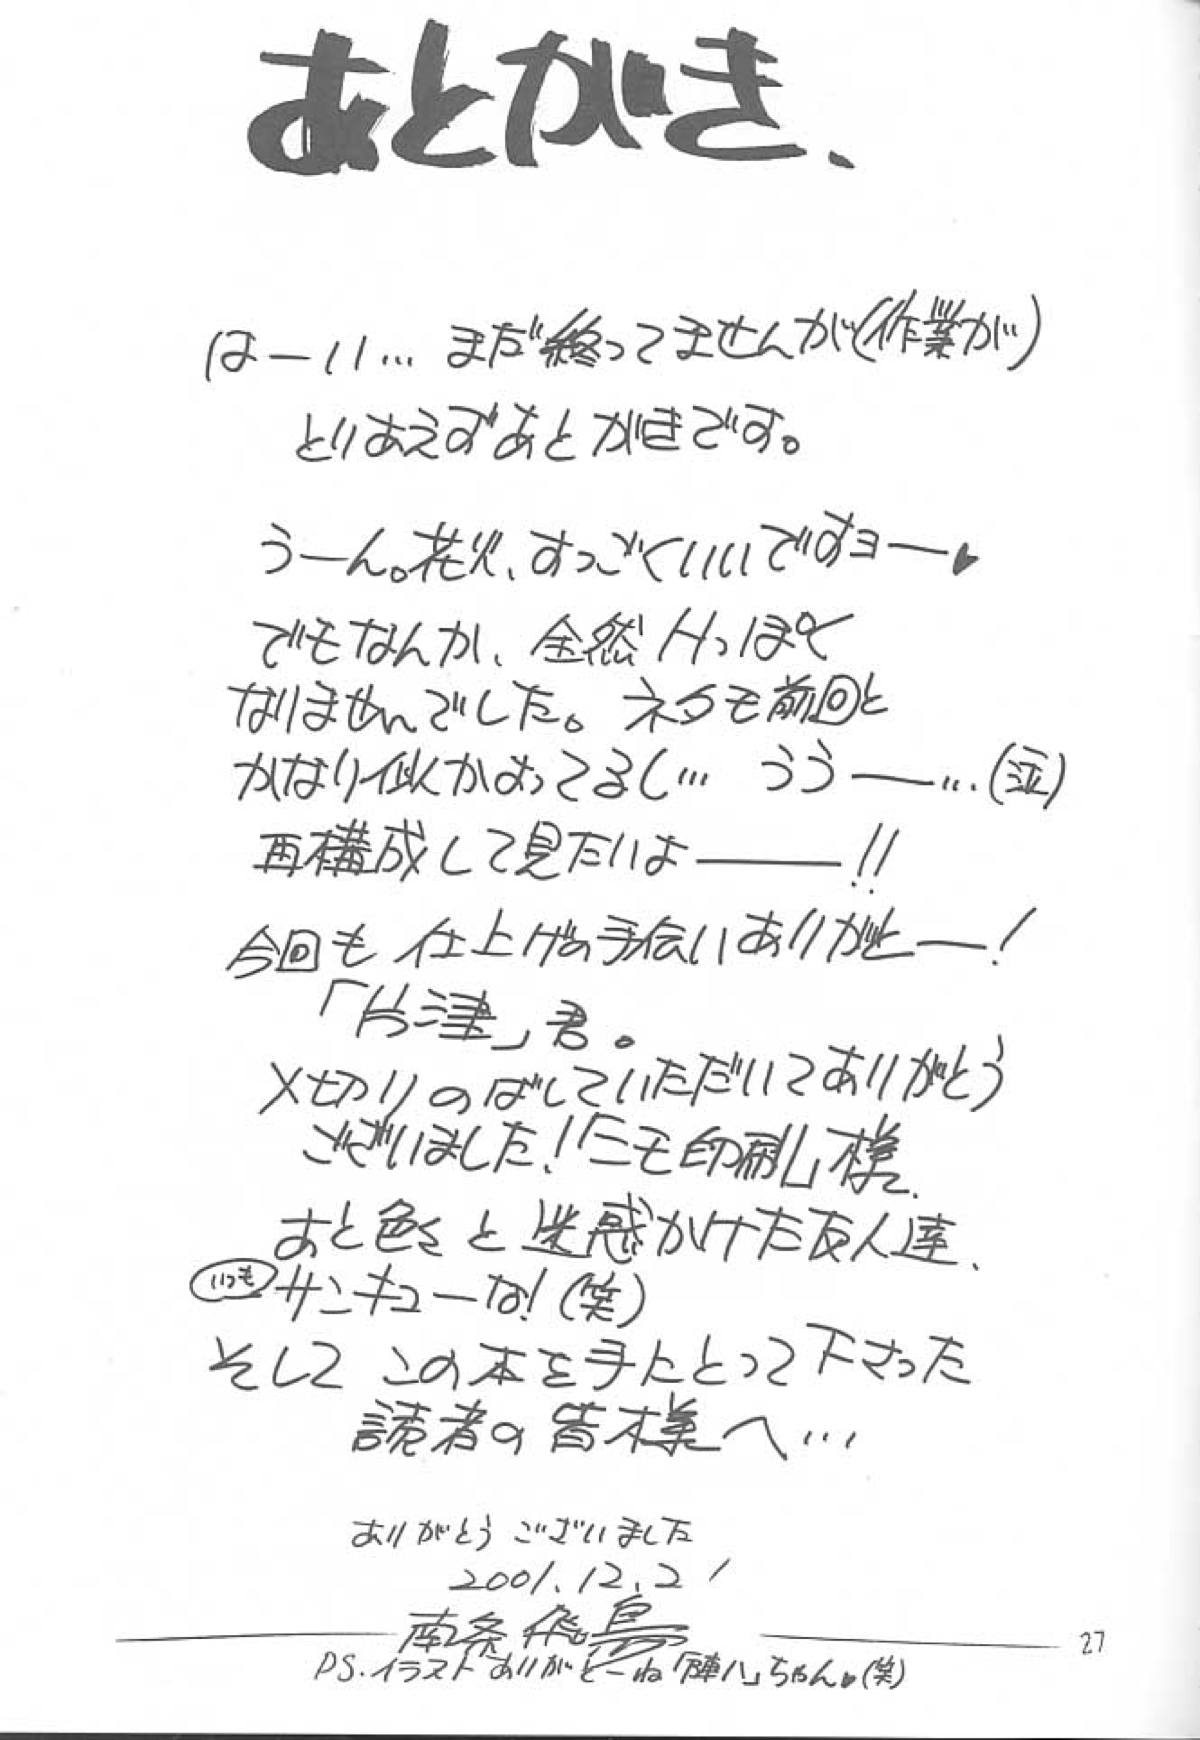 あとがき、
はーい… まだ終ってませんが(作業が)
とりあえずあとがきです。
うーん。花火、すっごくいいですヨー♥
でもなんか、全然Hっぽく
なりませんでした。ネタも前回と
かなり似かよってるし… うう――…(泣)
再構成して見たいよ――!!
今回も仕上げの手伝いありがとー!
「片津」君。
〆切りのばしていただいてありがとう
ございました!「ニモ印刷」様。
あと色々と迷惑かけた友人達、
いつもサンキューな!(笑)
そしてこの本を手にとって下さった
読者の皆様へ…
ありがとうございました
2001.12.2
南条飛鳥
27
PS.イラストありがとーね「陣八」ちゃん♥(笑)